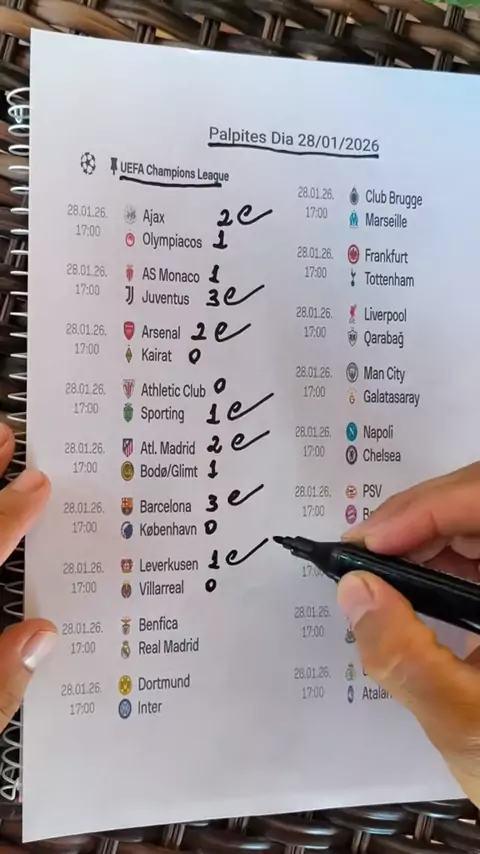 Palpites Dia 28/01/2026
UEFA Champions League
28.01.26. Ajax 2
17:00 Olympiacos 1
28.01.26. AS Monaco 1
17:00 Juventus 3
28.01.26. Arsenal 2
17:00 Kairat 0
28.01.26. Athletic Club 0
17:00 Sporting 1
28.01.26. Atl. Madrid 2
17:00 Bodø/Glimt 1
28.01.26. Barcelona 3
17:00 København 0
28.01.26. Leverkusen 1
17:00 Villarreal 0
28.01.26. Benfica
17:00 Real Madrid
28.01.26. Dortmund
17:00 Inter
28.01.26. Club Brugge
17:00 Marseille
28.01.26. Frankfurt
17:00 Tottenham
28.01.26. Liverpool
17:00 Qarabağ
28.01.26. Man City
17:00 Galatasaray
28.01.26. Napoli
17:00 Chelsea
28.01.26. PSV
17:00
28.01.26.
17:00
28.01.26.
17:00